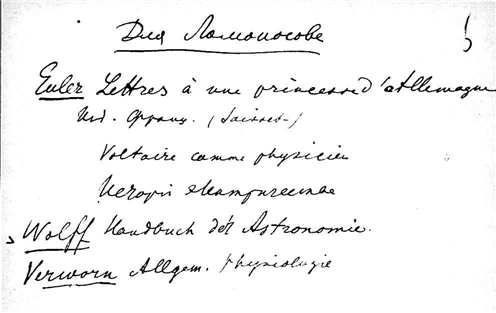 Для Ломоносове
Euler Lettres à une princesse d'Allemagne
Изд. Франц. (Saisset)
Voltaire comme physicien
История электричества
Wolff Handbuch der Astronomie.
Verworn Allgem. Physiologie